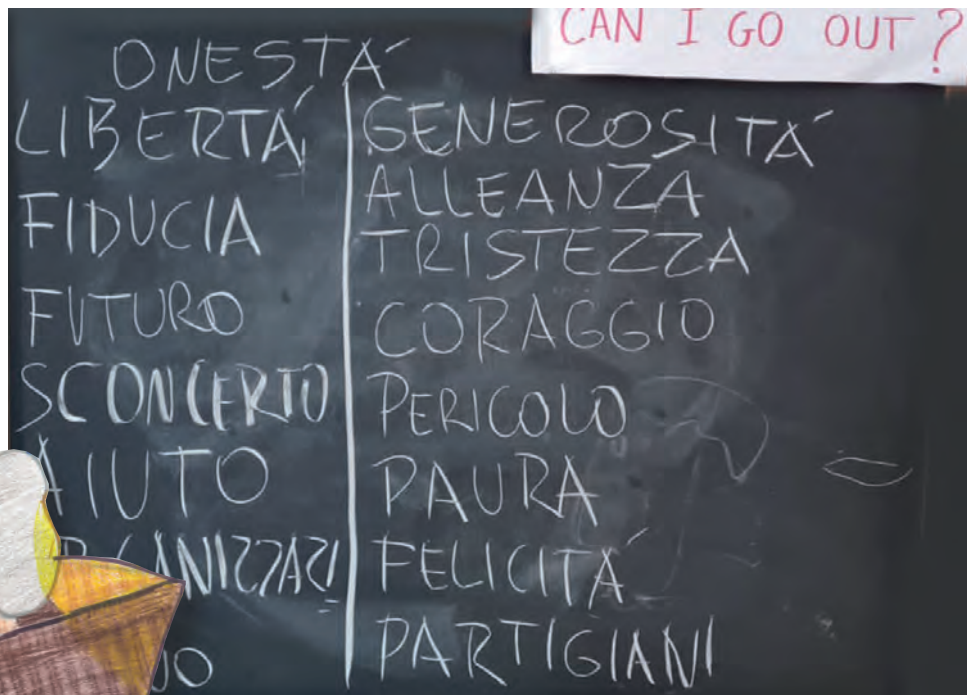 CAN I GO OUT?
ONESTÁ
LIBERTÁ
FIDUCIA
FUTURO
SCONCERTO
AIUTO
GENEROSITÁ
ALLEANZA
TRISTEZZA
CORAGGIO
PERICOLO
PAURA
FELICITÁ
PARTIGIANI